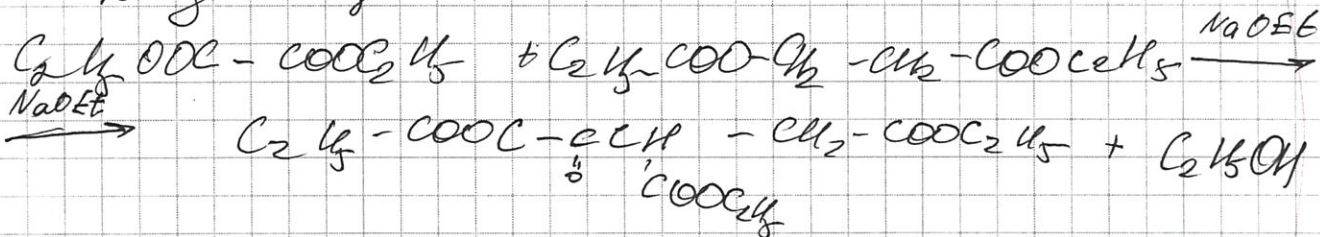 C₂H₅OOC – COOC₂H₅ + C₂H₅-COO-CH₂-CH₂-COOC₂H₅ NaOEt →
NaOEt → C₂H₅-COOC-C CH - CH₂-COOC₂H₅ + C₂H₅OH
O
COOC₂H₅